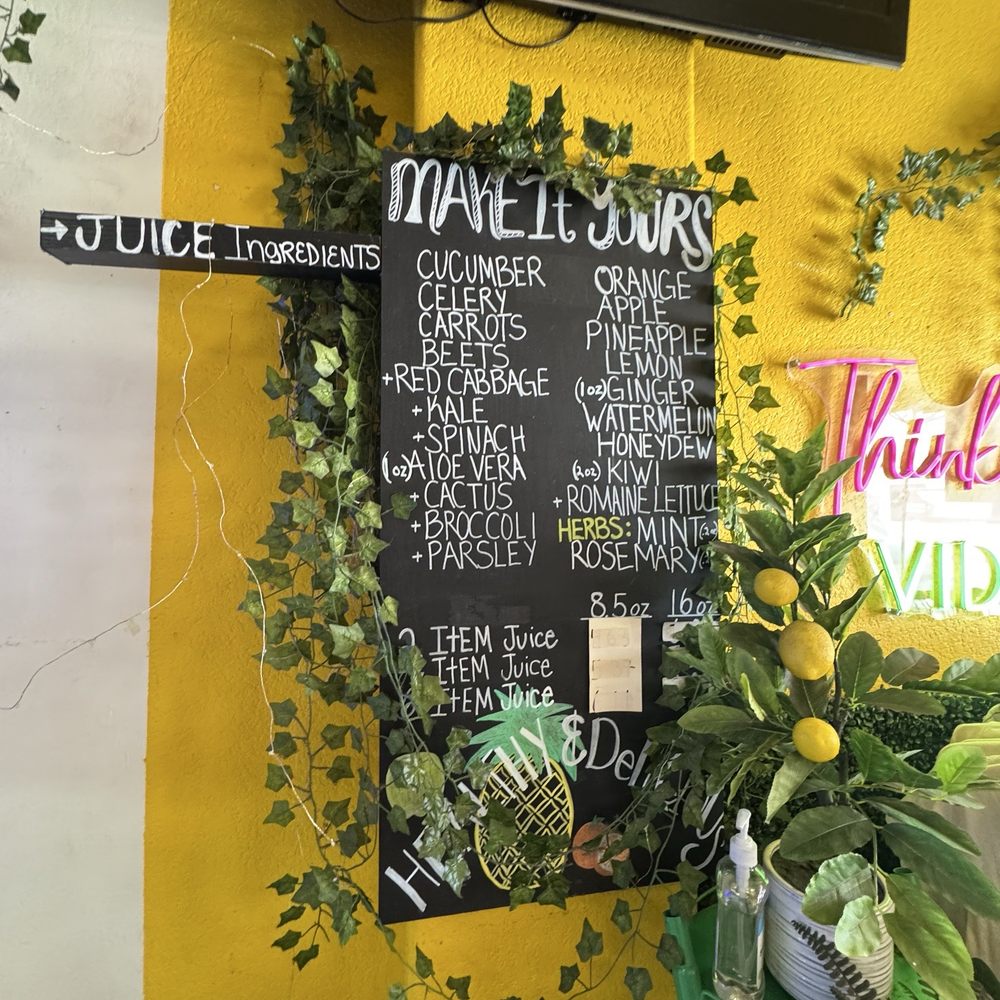 MAKE It YOURS
→JUICE INGREDIENTS
CUCUMBER
CELERY
CARROTS
BEETS
+RED CABBAGE
+KALE
+SPINACH
(1oz)ALOE VERA
+CACTUS
+BROCCOLI
+PARSLEY
ORANGE
APPLE
PINEAPPLE
LEMON
(1oz)GINGER
WATERMELON
HONEYDEW
(2oz) KIWI
+ROMAINE LETTUCE
HERBS: MINT
ROSEMARY
8.5oz 16oz
ItEM Juice
ItEM Juice
ItEM Juice
&
Think